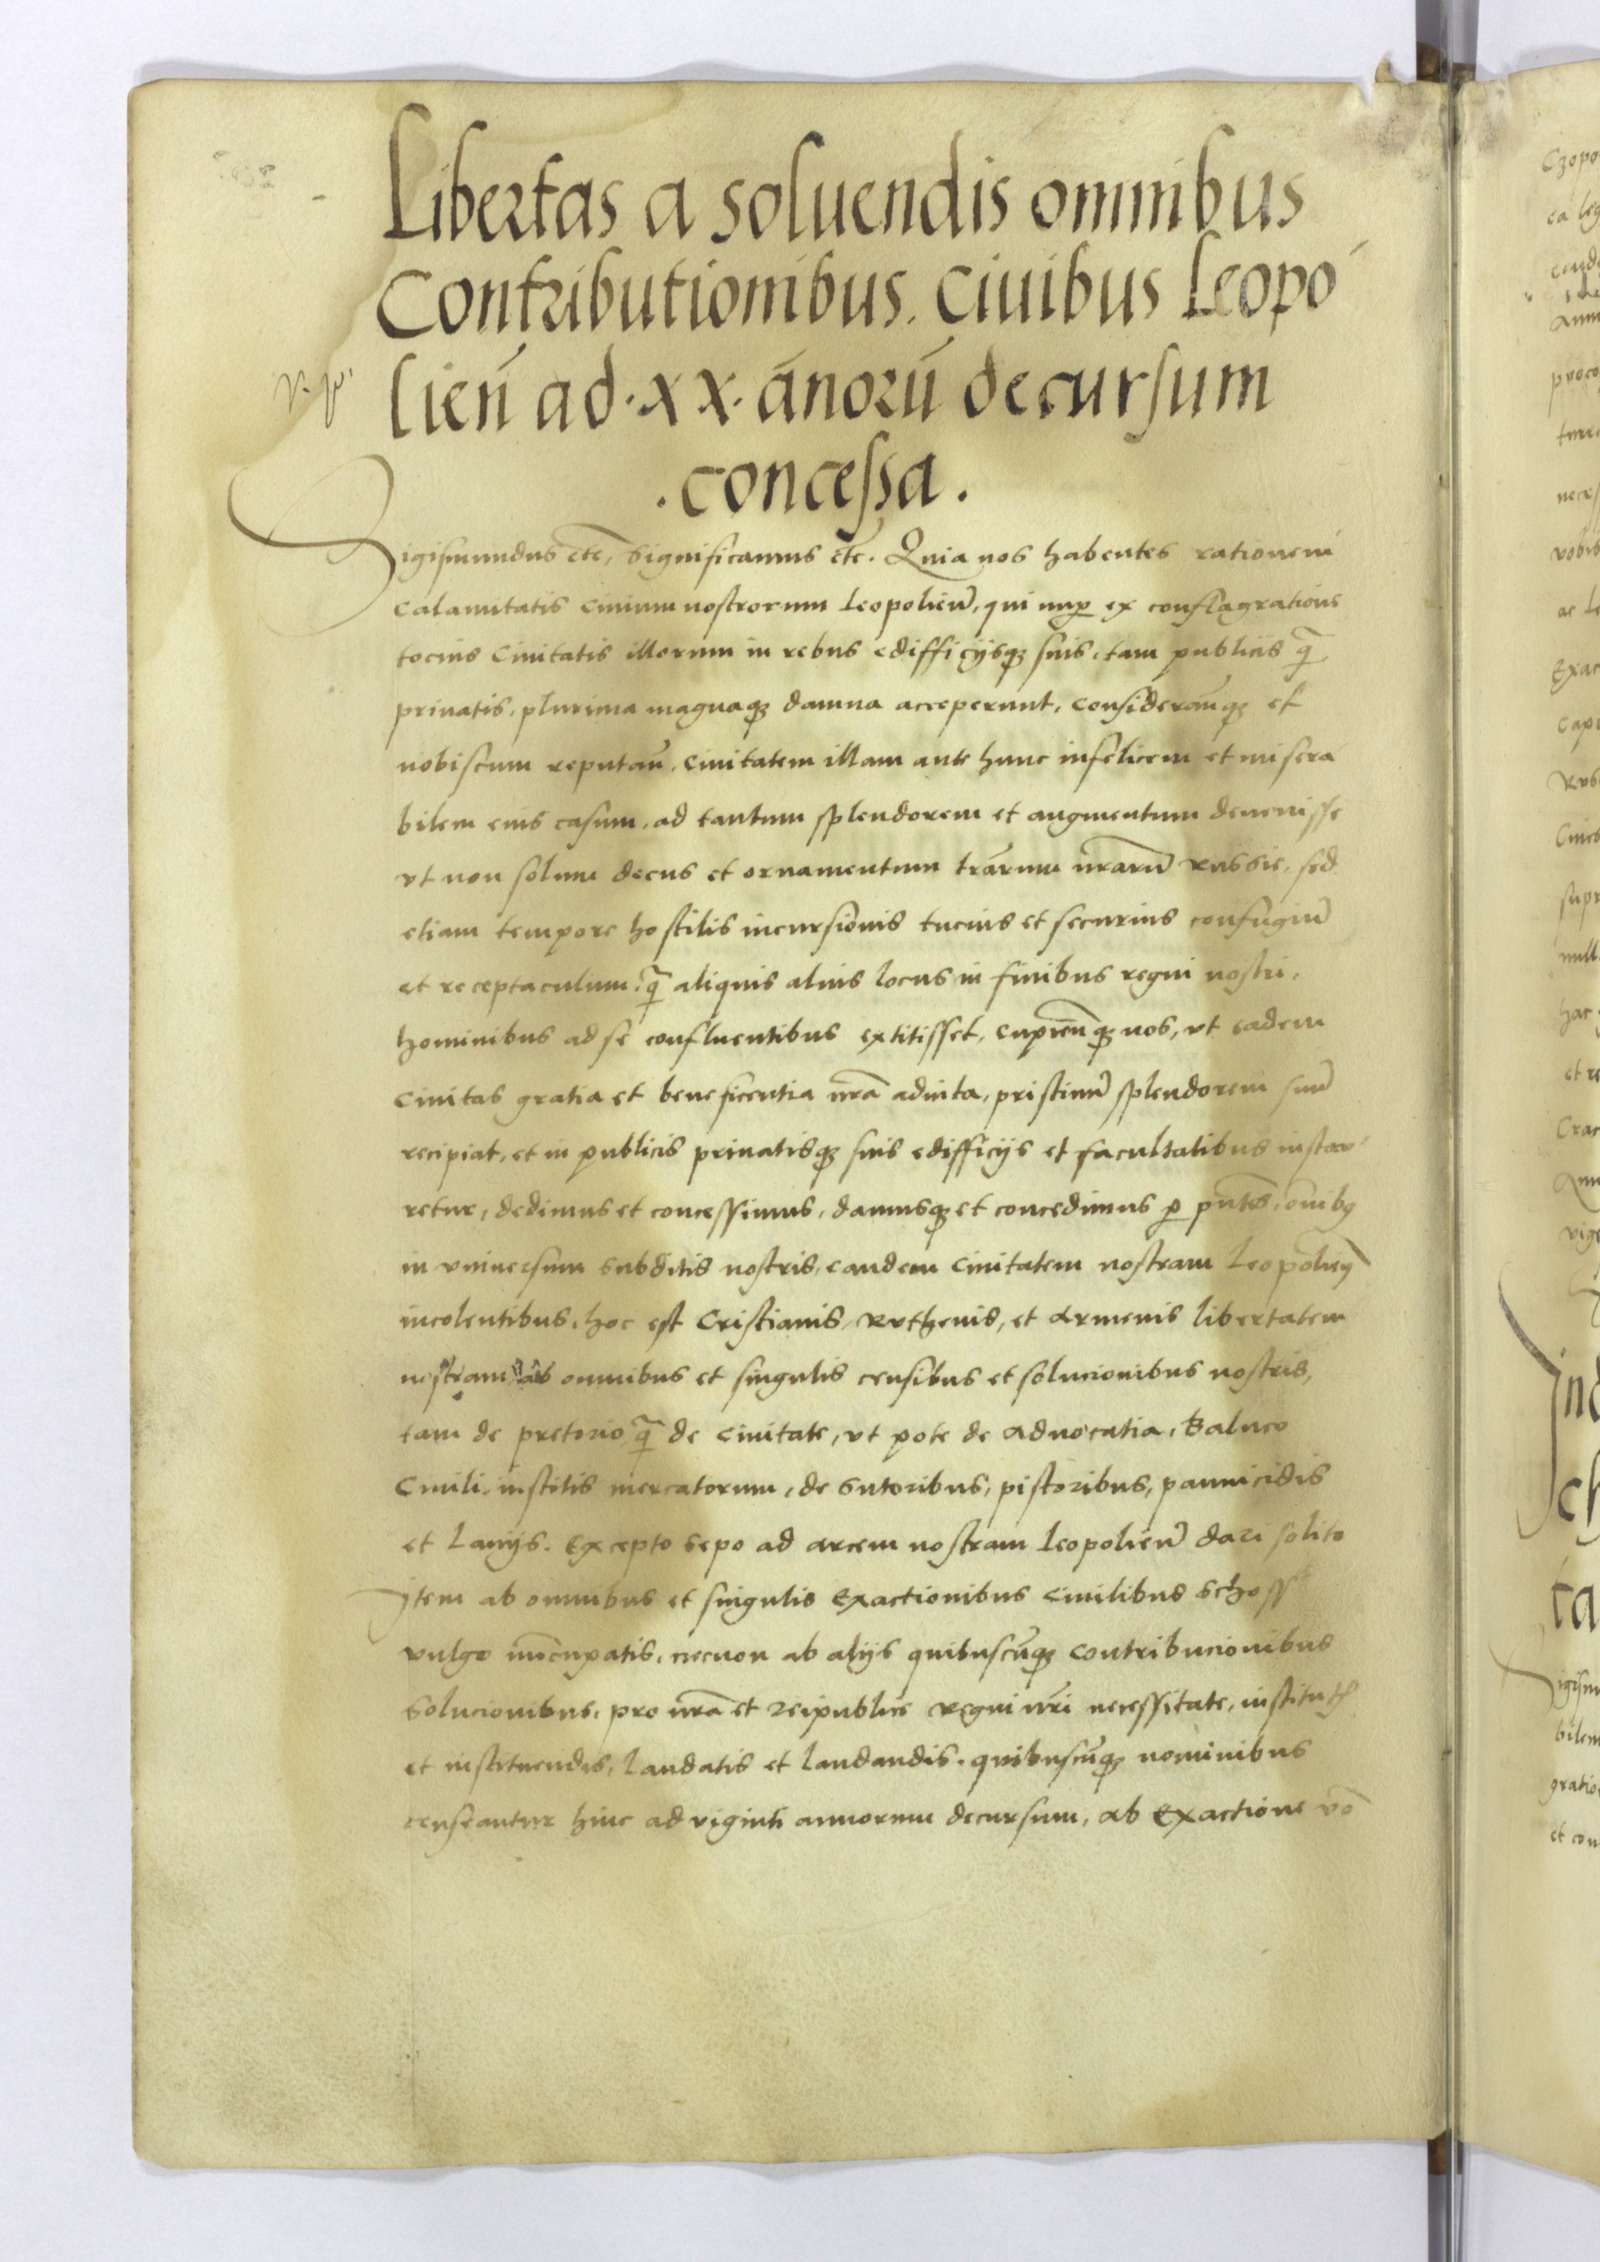 Libertas a soluendis omnibus
Contributionibus. Ciuibus Leopo
lien̄ ad · xx · ānorū decursum
. concessa .
Sigismundus etc̄, Significamus etc̄. Quia nos habentes rationem
calamitatis Ciuium nostrorum Leopolien̄, qui nup̱ ex conflagratione
tocius Ciuitatis illorum in rebus edifficijsqȝ suis, tam publicis q̄
priuatis, plurima magnaqȝ damna acceperunt, considerān̄qȝ et
nobiscum reputan̄, Ciuitatem illam ante hunc infelicem et misera
bilem eius casum, ad tantum splendorem et augmentum deuenisse
vt non solum decus et ornamentum trārum nr̄arū Russie, sed
etiam tempore hostilis incursionis tucius et securius confugiū
et receptaculum, q̄ aliquis alius locus in finibus regni nostri,
hominibus ad se confluentibus extitisset, cupien̄qȝ nos, vt eadem
Ciuitas gratia et beneficentia nr̄a adiuta, pristinū splendorem suū
recipiat, et in publicis priuatisqȝ suis edifficijs et facultatibus instau
retur, dedimus et concessimus, damusqȝ et concedimus p̱ pn̄tes, om̄ibꝫ
in vniuersum subditis nostris, eandem Ciuitatem nostram Leopolien̄
incolentibus, hoc est Cristianis, Ruthenis, et Armenis libertatem
nostram ab omnibus et singulis censibus et solucionibus nostris,
tam de pretorio q̄ de Ciuitate, vt pote de aduocatia, Balneo
Ciuili, institis mercatorum, de Sutoribus, pistoribus, pannicidis
et Lanijs. Excepto sepo ad arcem nostram Leopolien̄ dari solito
Item ab omnibus et singulis Exactionibus Ciuilibus Schoss
vulgo nūcupatis, necnon ab alijs quibuscūqȝ contribucionibus
Solucionibus, pro nr̄a et Reipublice Regni nr̄i necessitate, institutꝭ
et instituendis, laudatis et laudandis, quibuscūqȝ nominibus
censeantur hinc ad viginti annorum decursum, ab Exactione vō
Czopo
ea leg
Exac
Capi
supr
null
hac
et re
Crac
vige
Ind
ch
ta
igism
bilem
gratio
et con